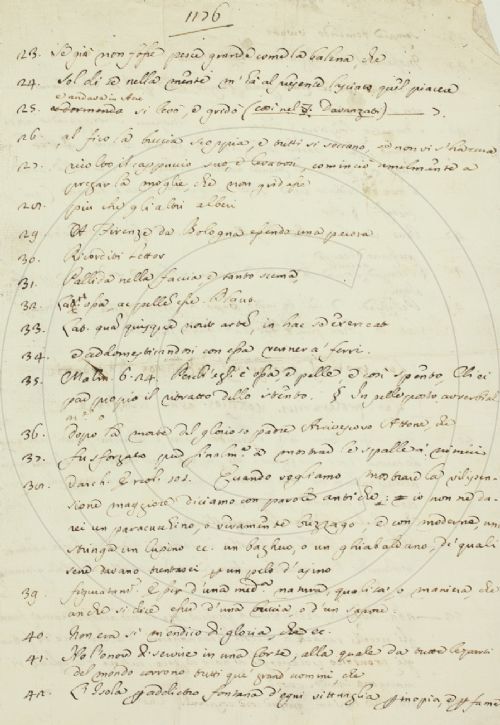 1126
23. Se già non fosse pesce grande come la balena, che
24. Sol di se nella mente m'ha al presente lasciato quel piacere
e andava in Ave
25. si levò, e gridò (così nel Davanzati)
26. al fico, la buccia scoppia, e tutti si seccano, se non vi s'
27. ricolto il cappuccio suo, e levatosi, cominciò umilmente a
pregar la moglie, che non gridasse
28. più che gli altri alberi
29. A Firenze da Bologna essendo una pecora
30. Ricorditi Lettor
31. Pallida nella faccia, e tanto scema,
32. ossa, ac pellis est. Plaut.
33. quam quisque norit artem, in hac se exerceat
34. addomesticandosi con essa verrà a' ferri.
35. Malm. 6. 24. Perch' egli è ossa e pelle e così spento, Ch' ei
par proprio il ritratto dello stento. In pelle posto avverbial
36. Dopo la morte del glorioso padre Arcivescovo Attone, che
37. fu sforzato pur finalm.e a mostrar le spalle a' nimici
38. Varch. Ercol. 101. Quando vogliamo mostrare la vilipen-
sione maggiore diciamo con parole antiche: io non ne da-
rei un paracucchino, o veramente buzzago; e con moderne, una
stringa un lupino ec. un baghero, o un ghiabaldano, de' quali
se ne davano trentasei per un pelo d'asino
39. E per d'una med.a natura, qualità, o maniera, che
anche si dice esser d'una buccia o d'un sapore.
40. Non era sì mendico di gloria, che ec.
41. Nell'onor di servire in una Corte, alla quale da tutte le parti
del mondo corrono tutti que' grand'uomini, che
42. L'Isola fontana d'ogni vittuaglia inopia, e fame